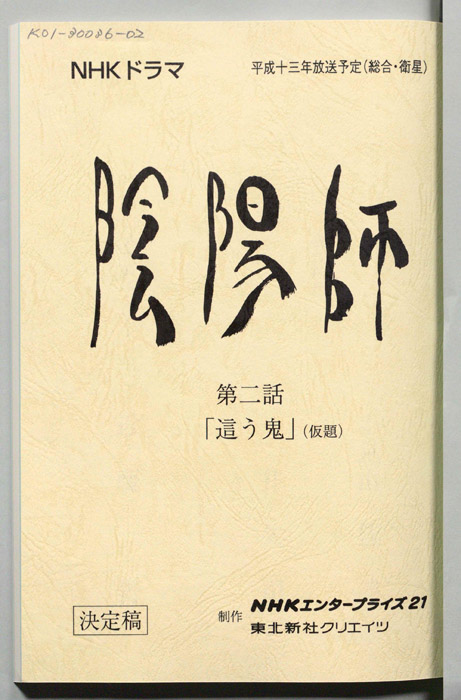 K01-80086-02
NHKドラマ 平成十三年放送予定(総合・衛星)
陰陽師
第二話
「這う鬼」(仮題)
決定稿
制作 NHKエンタープライズ21
東北新社クリエイツ